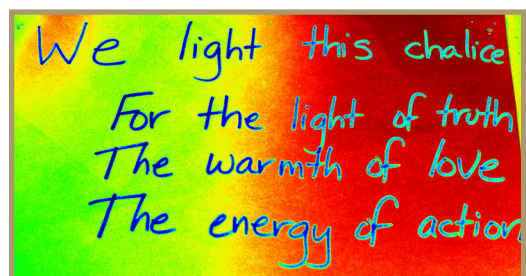 We light this chalice
For the light of truth
The warmth of love
The energy of action